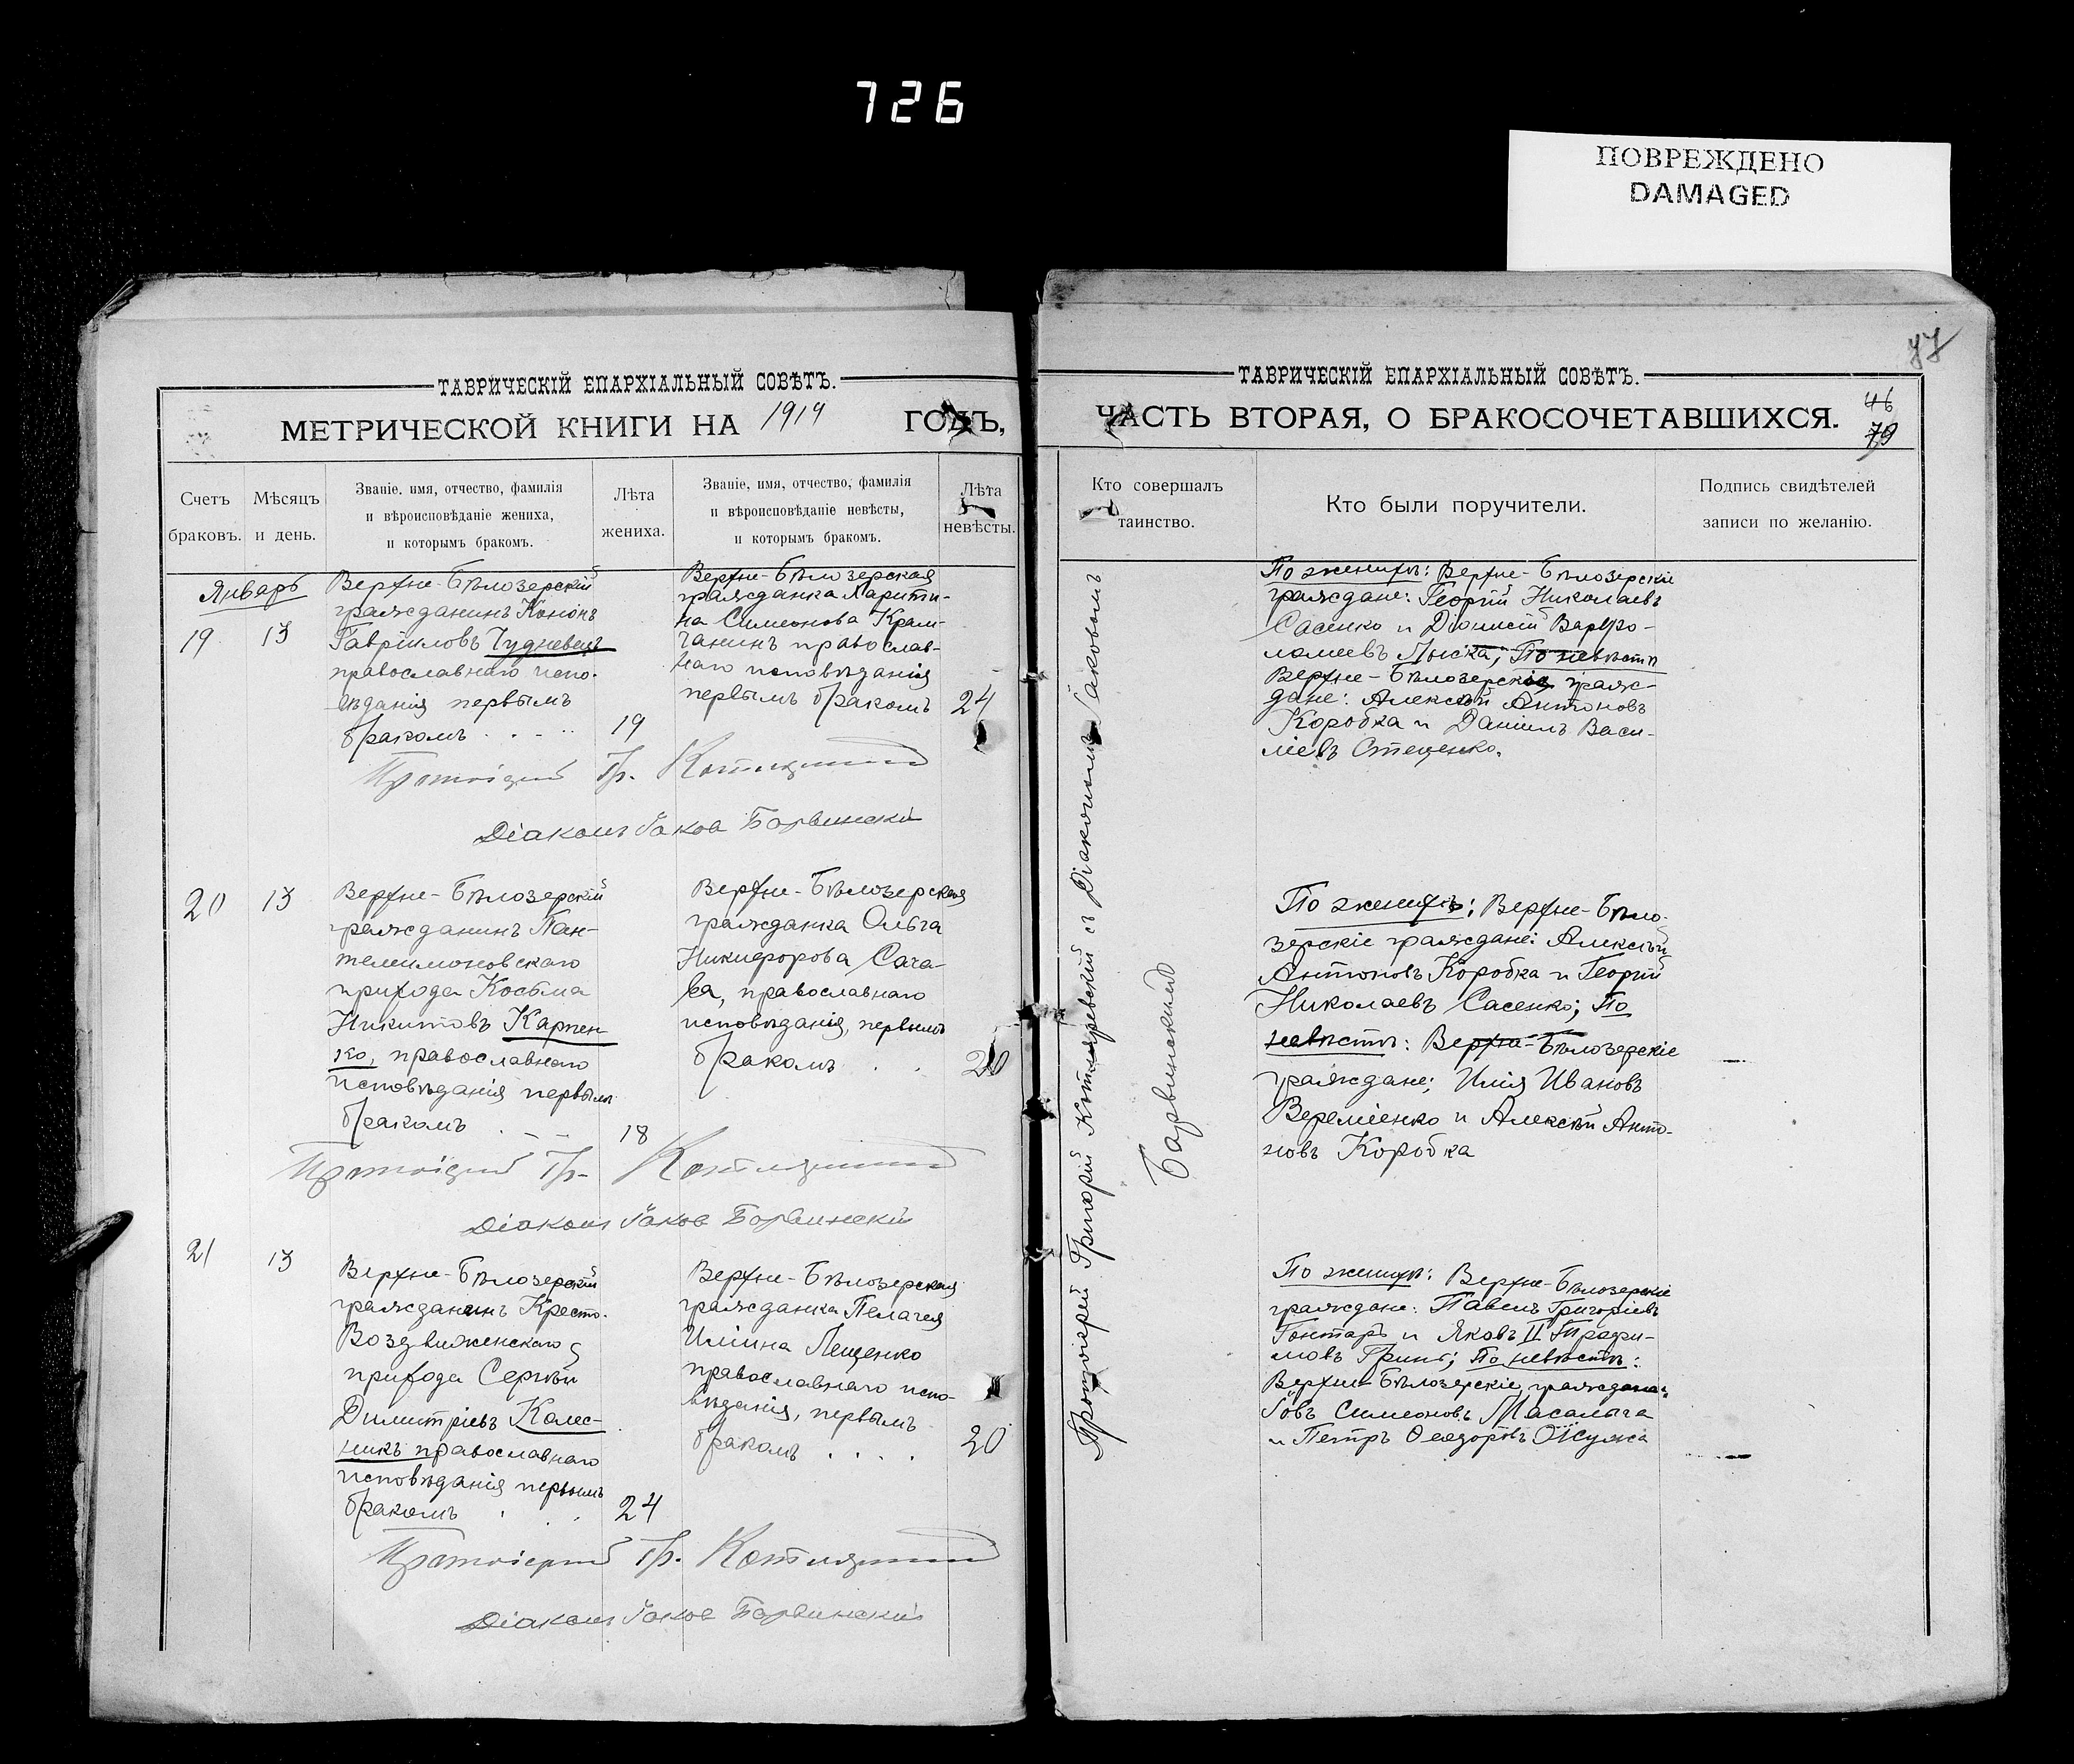 726
ПОВРЕЖДЕНО
DAMAGED
ТАВРИЧЕСКІЙ ЕПАРХІАЛЬНЫЙ СОВѢТЪ.
МЕТРИЧЕСКОЙ КНИГИ НА 1919 ГОДЪ,
Счетъ браковъ.
Мѣсяцъ и день.
Званіе, имя, отчество, фамилія
и вѣроисповѣданіе жениха,
и которымъ бракомъ.
Лѣта жениха.
Званіе, имя, отчество, фамилія
и вѣроисповѣданіе невѣсты,
и которымъ бракомъ.
Лѣта невѣсты.
Январь
19
13
Верхне-Бѣлозерскій
гражданинъ Кононъ
Гавріиловъ Чудневецъ
православнаго испо-
вѣданія первымъ
бракомъ
19
Верхне-Бѣлозерская
гражданка Харити-
на Симеонова Крам-
чанинъ православ-
наго исповѣданія
первымъ бракомъ
24
Протоіерей Гр. Котляревскій
Діаконъ Іаковъ Барвинскій
20
13
Верхне-Бѣлозерскій
гражданинъ Пан-
телеимоновскаго
прихода Косьма
Никитовъ Карпен-
ко, православнаго
исповѣданія первымъ
бракомъ
18
Верхне-Бѣлозерская
гражданка Ольга
Никифорова Сага-
ва, православнаго
исповѣданія, первымъ
бракомъ
20
Протоіерей Гр. Котляревскій
Діаконъ Іаковъ Барвинскій
21
13
Верхне-Бѣлозерскій
гражданинъ Кресто-
Воздвиженскаго
прихода Сергѣй
Димитріевъ Колес-
никъ православнаго
исповѣданія первымъ
бракомъ
24
Верхне-Бѣлозерская
гражданка Пелагея
Иліина Лещенко
православнаго испо-
вѣданія, первымъ
бракомъ
20
Протоіерей Гр. Котляревскій
Діаконъ Іаковъ Барвинскій
77
ТАВРИЧЕСКІЙ ЕПАРХІАЛЬНЫЙ СОВѢТЪ.
ЧАСТЬ ВТОРАЯ, О БРАКОСОЧЕТАВШИХСЯ.
46
79
Кто совершалъ таинство.
Кто были поручители.
Подпись свидѣтелей
записи по желанію.
Протоіерей Григорій Котляревскій съ Діакономъ Іаковомъ
Барвинскимъ
По женихѣ: Верхне-Бѣлозерскіе
граждане: Георгій Николаевъ
Сасенко и Діонисій Варфо-
ломеевъ Лыска; По невѣстѣ
Верхне-Бѣлозерскіе граж-
дане: Алексѣй Антоновъ
Коробка и Даніилъ Васи-
ліевъ Стеценко.
По женихѣ: Верхне-Бѣло-
зерскіе граждане: Алексѣй
Антоновъ Коробка и Георгій
Николаевъ Сасенко; По
невѣстѣ: Верхне-Бѣлозерскіе
граждане: Илія Ивановъ
Вереміенко и Алексѣй Анто-
новъ Коробка
По женихѣ: Верхне-Бѣлозерскіе
граждане: Павелъ Григоріевъ
Гонтарь и Яковъ II Трофи-
мовъ Гринь; По невѣстѣ:
Верхне-Бѣлозерскіе граждане:
Іовъ Симеоновъ Масалыга
и Петръ Ѳеодоровъ